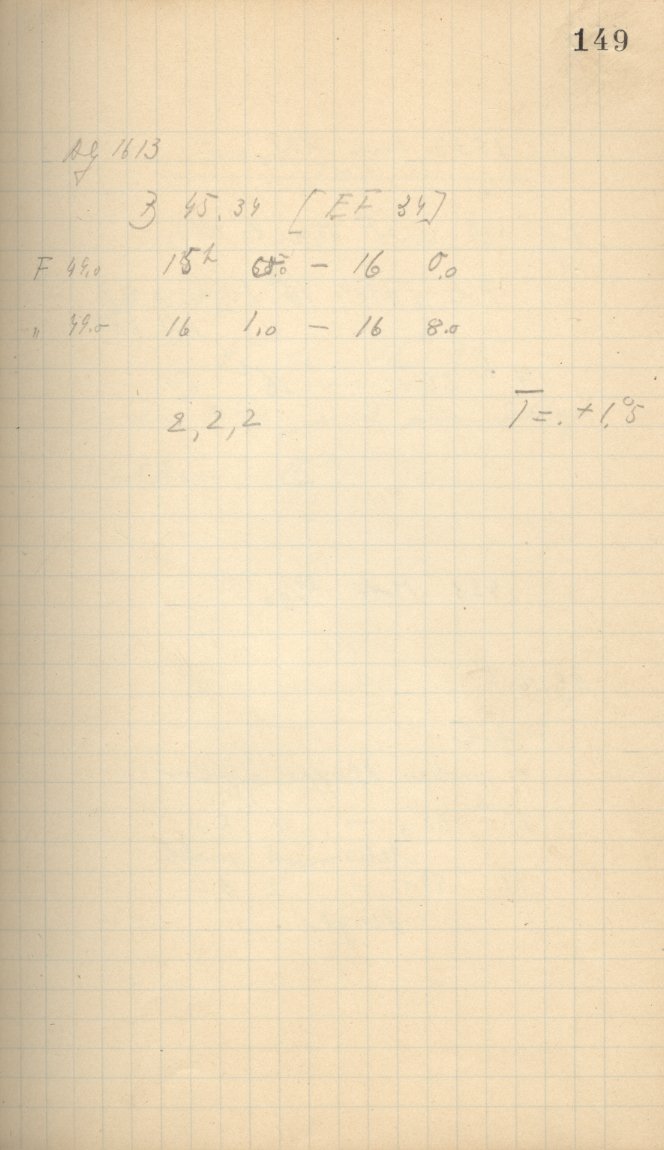 149
Ag 1613
3) 45.34 [EF 34]
F 49.0 15h 55.0 – 16 0.0
" 49.0 16 1.0 – 16 8.0
2, 2, 2 T = . + 1.°5